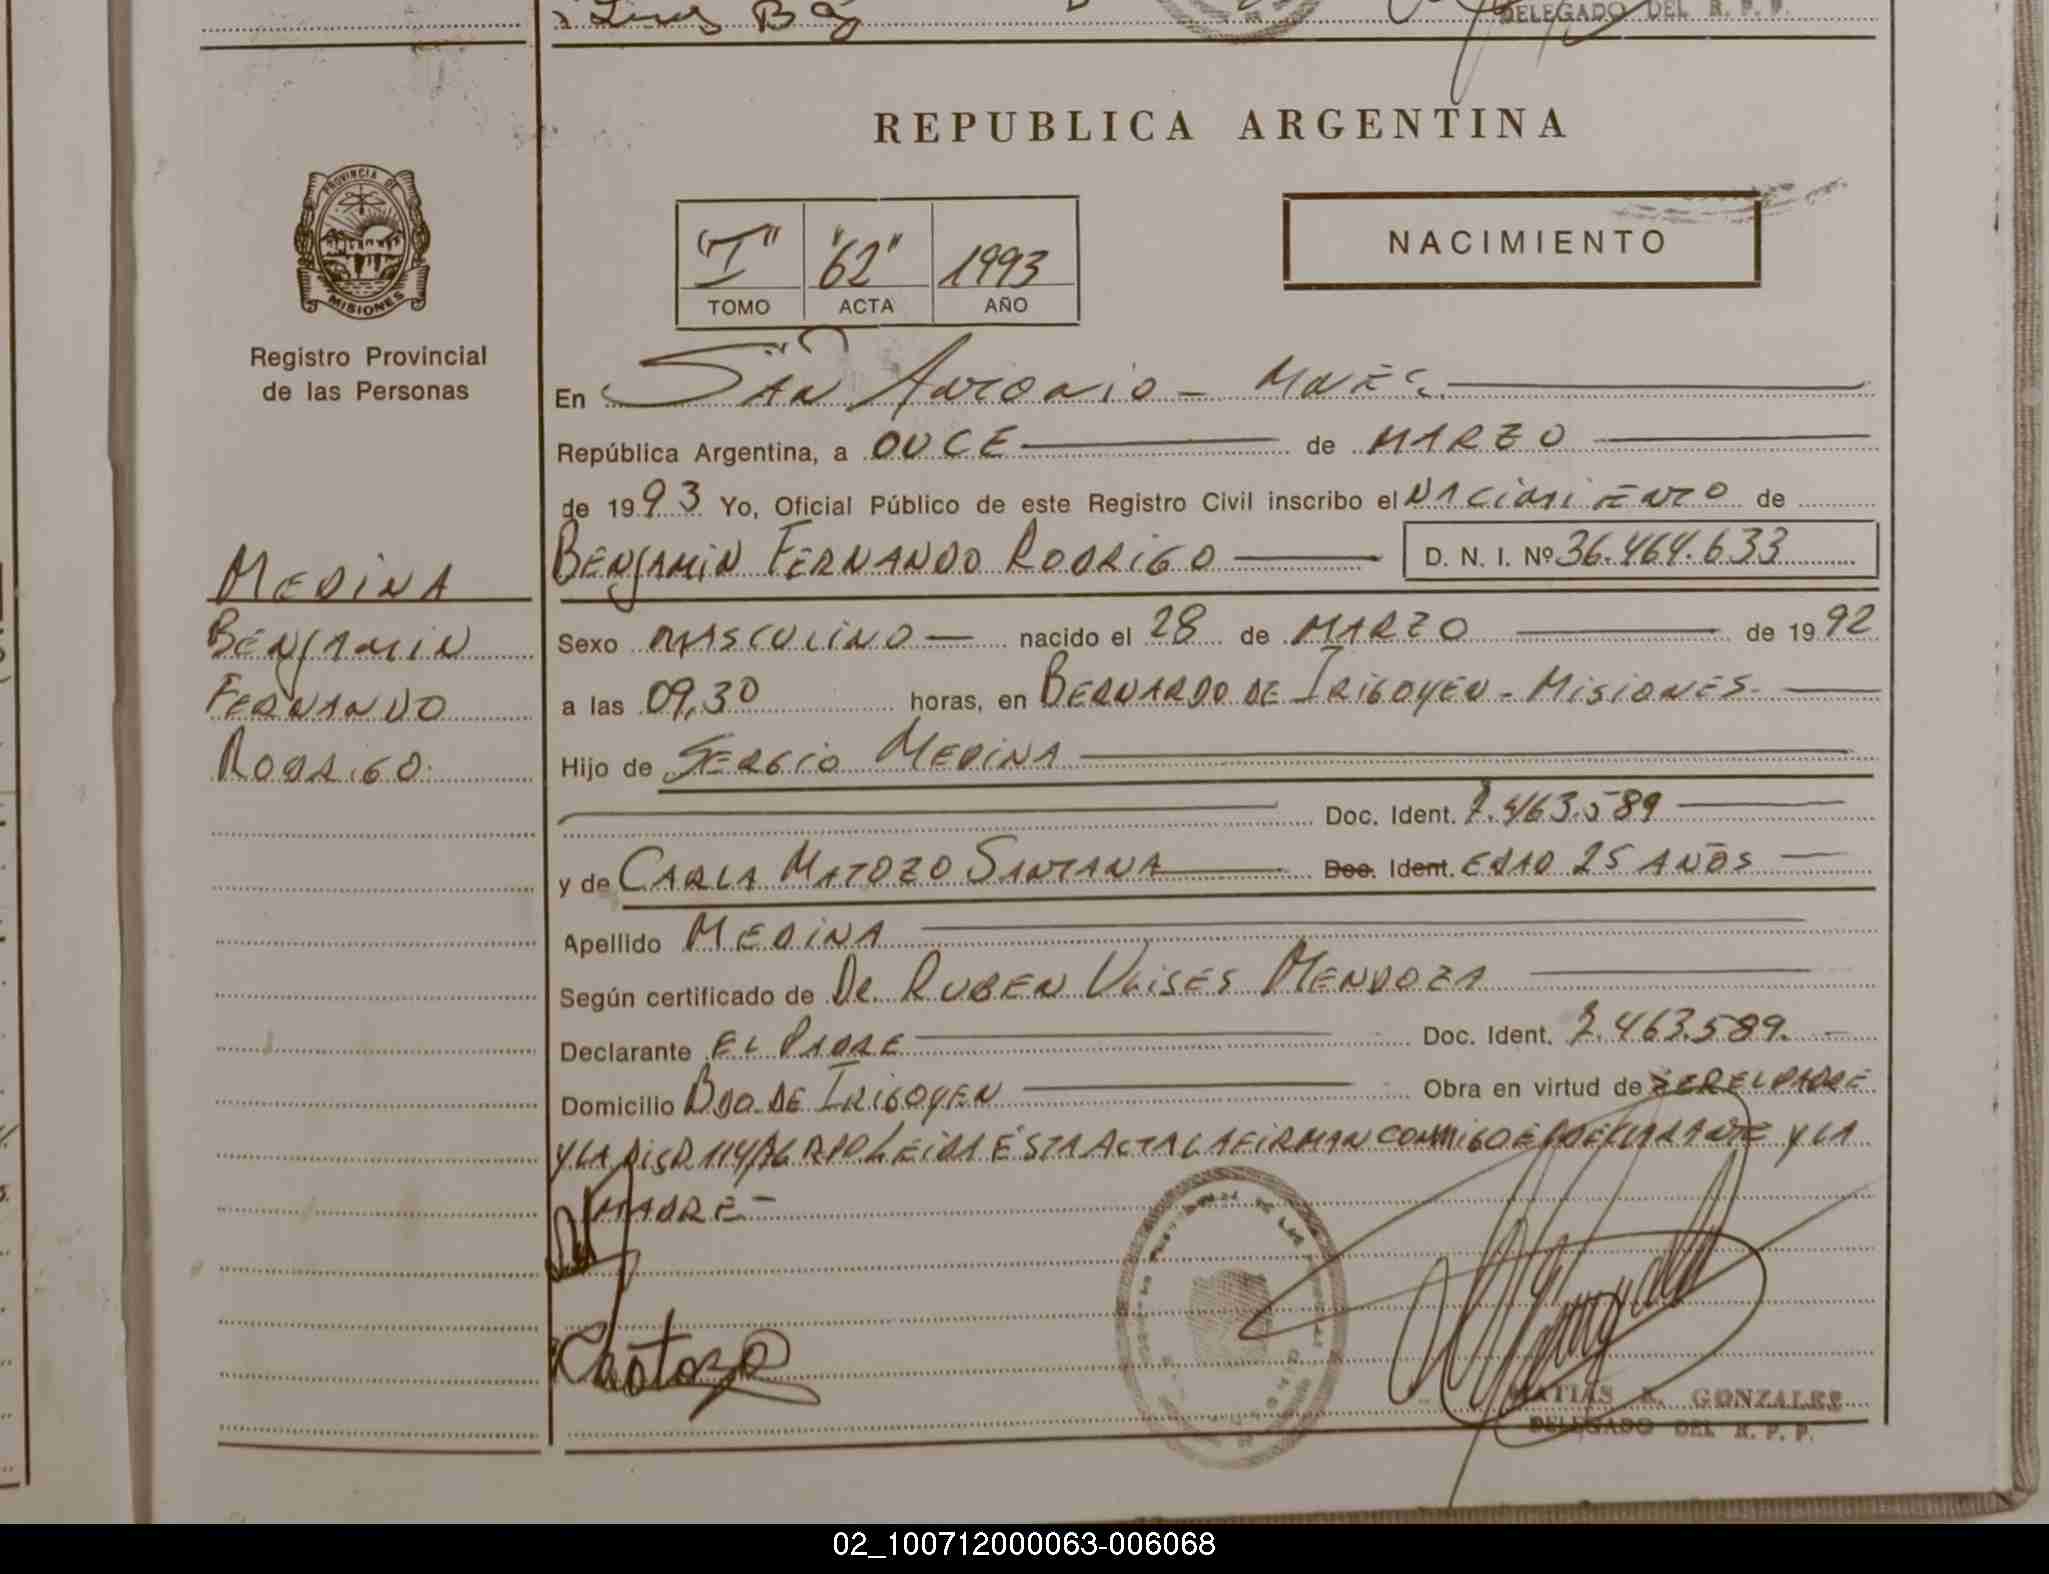 DELEGADO DEL R. P. P.
REPUBLICA ARGENTINA
PROVINCIA DE
MISIONES
Registro Provincial
de las Personas
"I" "62" 1993
TOMO ACTA AÑO
NACIMIENTO
En SAN ANTONIO - MNES.
República Argentina, a DOCE de MARZO
de 1993 Yo, Oficial Público de este Registro Civil inscribo el NACIMIENTO de
BENJAMIN FERNANDO RODRIGO D. N. I. Nº 36.464.633
MEDINA
BENJAMIN
FERNANDO
RODRIGO.
Sexo MASCULINO nacido el 28 de MARZO de 1992
a las 09,30 horas, en BERNARDO DE IRIGOYEN - MISIONES.
Hijo de SERGIO MEDINA
Doc. Ident. 7.463.589
y de CARLA MATOZO SANTANA Doc. Ident. EDAD 25 AÑOS
Apellido MEDINA
Según certificado de Dr. RUBEN ULISES MENDOZA
Declarante EL PADRE Doc. Ident. 7.463.589.
Domicilio BDO. DE IRIGOYEN Obra en virtud de SER EL PADRE
Y LA LEIDA ESTA ACTA LA FIRMAN CONMIGO EL DECLARANTE Y LA
MADRE -
MATIAS R. GONZALEZ
DELEGADO DEL R. P. P.
02_100712000063-006068